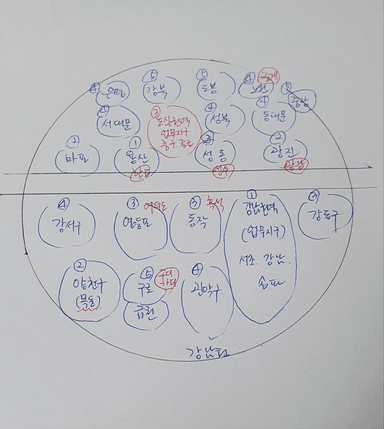 ④ 은평
⑤ 강북
⑤ 도봉
④ 노원
중계
⑤ 중랑
④ 서대문
③ 도심권역
업무지구
중구. 종로
④ 성북
④ 동대문
② 마포
① 용산
성동
② 광진
광남
④ 강서구
③ 여의도
영등포
③ 흑석
동작
① 강남권역
(업무지구)
서초. 강남.
송파
강동구
② 양천구
(목동)
⑤ 구로
금천
④ 관악구